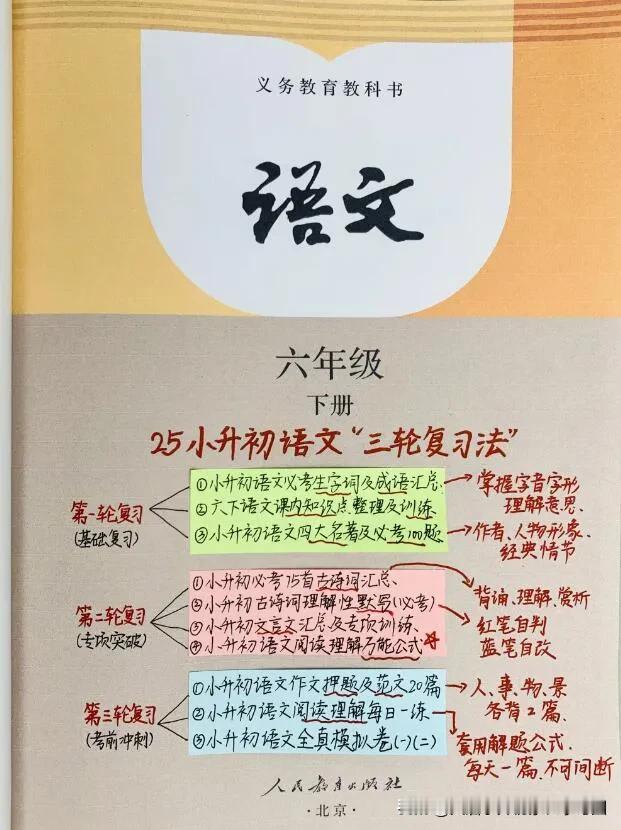 义务教育教科书
语文
六年级
下册
25小升初语文“三轮复习法”
第一轮复习
(基础复习)
①小升初语文必考生字词及成语汇总.
②六下语文课内知识点整理及训练
③小升初语文四大名著及必考100题
掌握字音字形
理解意思.
作者、人物形象、
经典情节
第二轮复习
(专项突破)
①小升初必考75首古诗词汇总、
②小升初古诗词理解性默写(必考)
③小升初文言文汇总及专项训练
④小升初语文阅读理解万能公式☆
背诵、理解、赏析
红笔自判
蓝笔自改
第三轮复习
(考前冲刺)
①小升初语文作文押题及范文20篇
②小升初语文阅读理解每日一练
③小升初语文全真模拟卷(一)(二)
人、事、物、景
各背2篇.
套用解题公式.
每天一篇、不可间断
人民教育出版社
·北京·